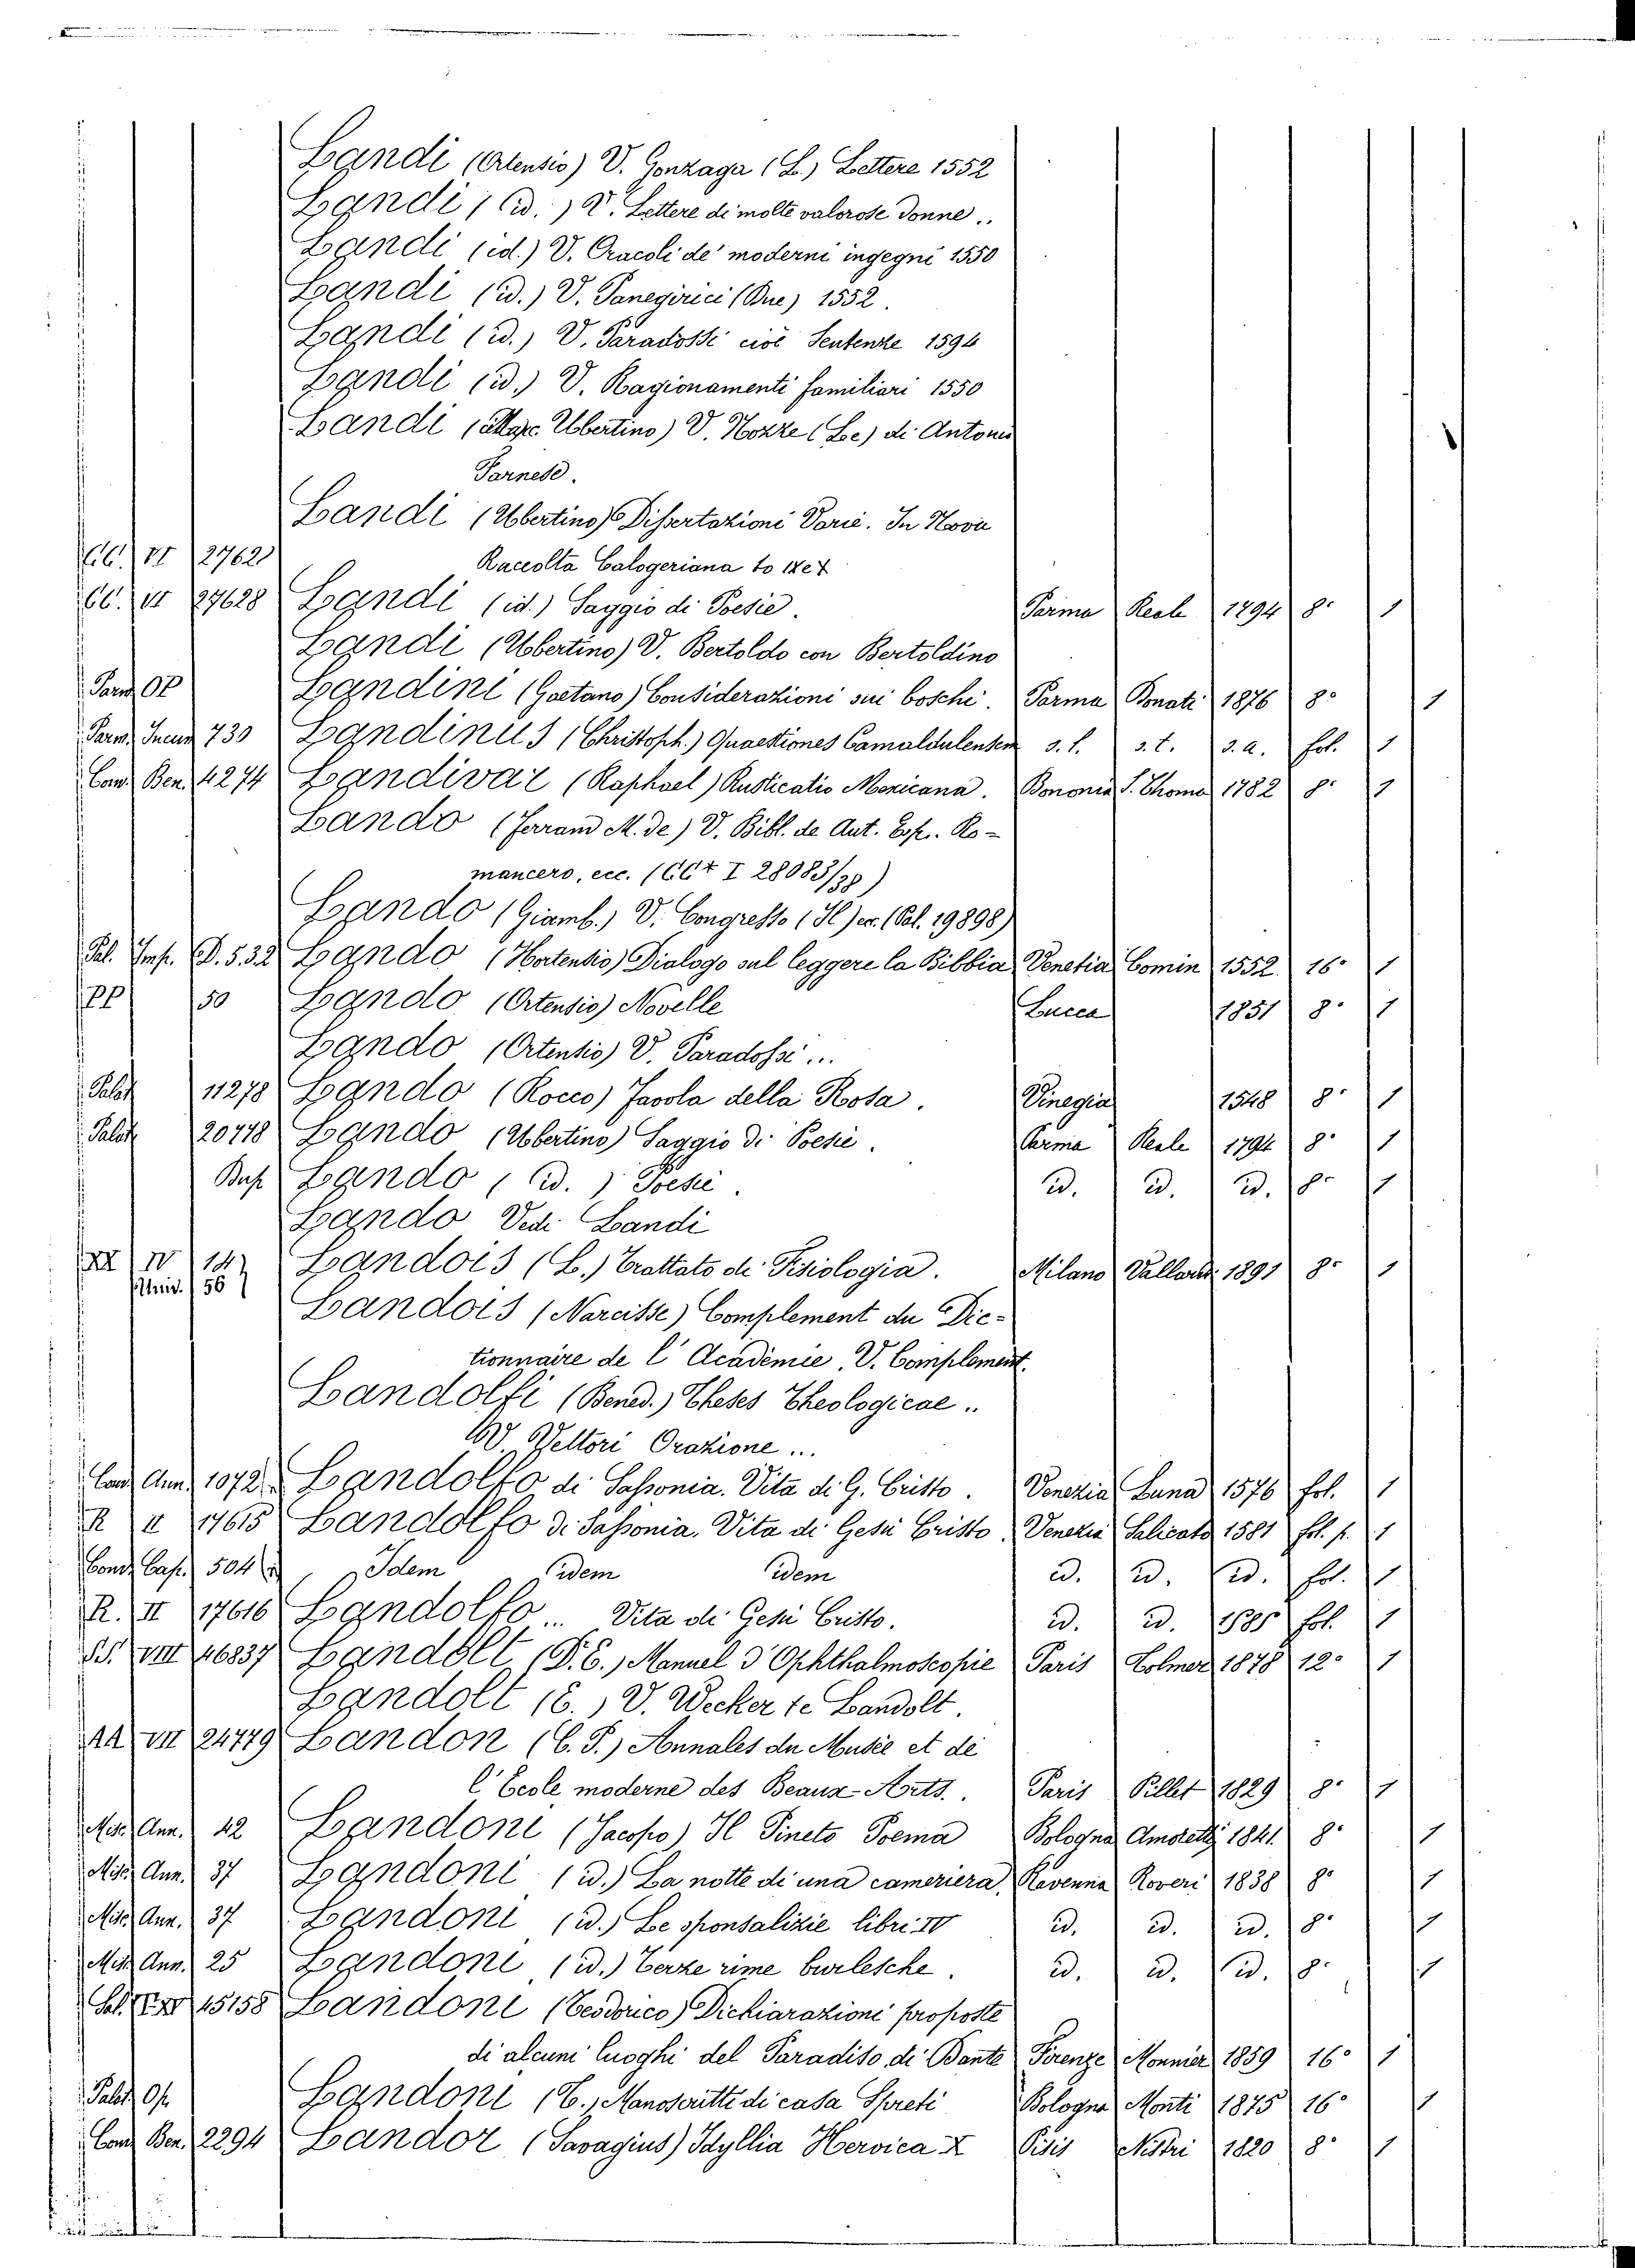 Landi (Ortensio) V. Gonzaga (L.) Lettere 1552
Landi (id.) V. Lettere di molte valorose donne..
Landi (id.) V. Oracoli de' moderni ingegni 1550
Landi (id.) V. Panegirici (Due) 1552.
Landi (id.) V. Paradossi cioè Sentenze 1594
Landi (id.) V. Ragionamenti familiari 1550
Landi (Marc. Ubertino) V. Nozze (Le) di Antonio
Farnese.
Landi (Ubertino) Dissertazioni Varie. In Nova
CC. VI 27621 Raccolta Calogeriana to
CC. VI 27628 Landi (id.) Saggio di Poesie. Parma Reale 1794 8º 1
Landi (Ubertino) V. Bertoldo con Bertoldino
Parm OP Landini (Gaetano) Considerazioni sui boschi. Parma Donati 1876 8º 1
Parm. Incun 730 Landinus (Christoph.) Quaestiones Camaldulensem s.l. s.t. s.a. fol. 1
Cand. Ben. 4274 Landivar (Raphael) Rusticatio Mexicana. Bononia S. Thoma 1782 8º 1
Lando (Ferrand M. de) V. Bibl. de Aut. Esp. Ro-
mancero, ecc. (CC+ I 28083/38)
Lando (Giamb.) V. Congresso (Il) ec. (Pal. 19898)
Pal. Imp. D. 5.32 Lando (Hortensio) Dialogo sul leggere la Bibbia Venetia Comin 1552 16º 1
PP 50 Lando (Ortensio) Novelle Lucca 1851 8º 1
Lando (Ortensio) V. Paradossi...
Palat 11278 Lando (Rocco) Favola della Rosa. Vinegia 1548 8º 1
Palat 20778 Lando (Ubertino) Saggio di Poesie. Parma Reale 1794 8º 1
Dup Lando (id.) Poesie. id. id. id. 8º 1
Lando Vedi Landi
XX IV 14 Landois (L.) Trattato di Fisiologia. Milano Vallardi 1891 8º 1
Univ. 56
Landois (Narcisse) Complement du Dic-
tionnaire de l'Académie. V. Complement.
Landolfi (Bened.) Theses Theologicae..
V. Vettori Orazione...
Cand Ann. 1072 Landolfo di Sassonia. Vita di G. Cristo. Venezia Luna 1576 fol. 1
R II 17615 Landolfo di Sassonia. Vita di Gesù Cristo Venezia Salicato 1581 fol. p. 1
Cond. Cap. 504 Idem idem idem id. id. id. fol. 1
R. II 17616 Landolfo... Vita di Gesù Cristo. id. id. 1585 fol. 1
SS. VIII 46837 Landolt (D. E.) Manuel d'Ophthalmoscopie Paris Dolmer 1878 12º 1
Landolt (E.) V. Wecker te Landolt.
AA VII 24779 Landon (C. P.) Annales du Musée et de
l'Ecole moderne des Beaux-Arts. Paris Pillet 1829 8º 1
Misc. Ann. 42 Landoni (Jacopo) Il Pineto Poema Bologna Amoretti 1841. 8º 1
Misc. Ann. 37 Landoni (id.) La notte di una cameriera, Ravenna Roveri 1838 8º 1
Misc. Ann. 37 Landoni (id.) Le sponsalizie libri IV id. id. id. 8º 1
Misc. Ann. 25 Landoni (id.) Terze rime burlesche. id. id. id. 8º 1
Sal. 45158 Landoni (Teodorico) Dichiarazioni proposte
di alcuni luoghi del Paradiso di Dante Firenze Monnier 1859 16º 1
Palat. Op. Landoni (T.) Manoscritti di casa Spreti Bologna Monti 1875 16º 1
Cand Ben. 2294 Landor (Savagius) Idyllia Heroica X Pisis Nistri 1820 8º 1